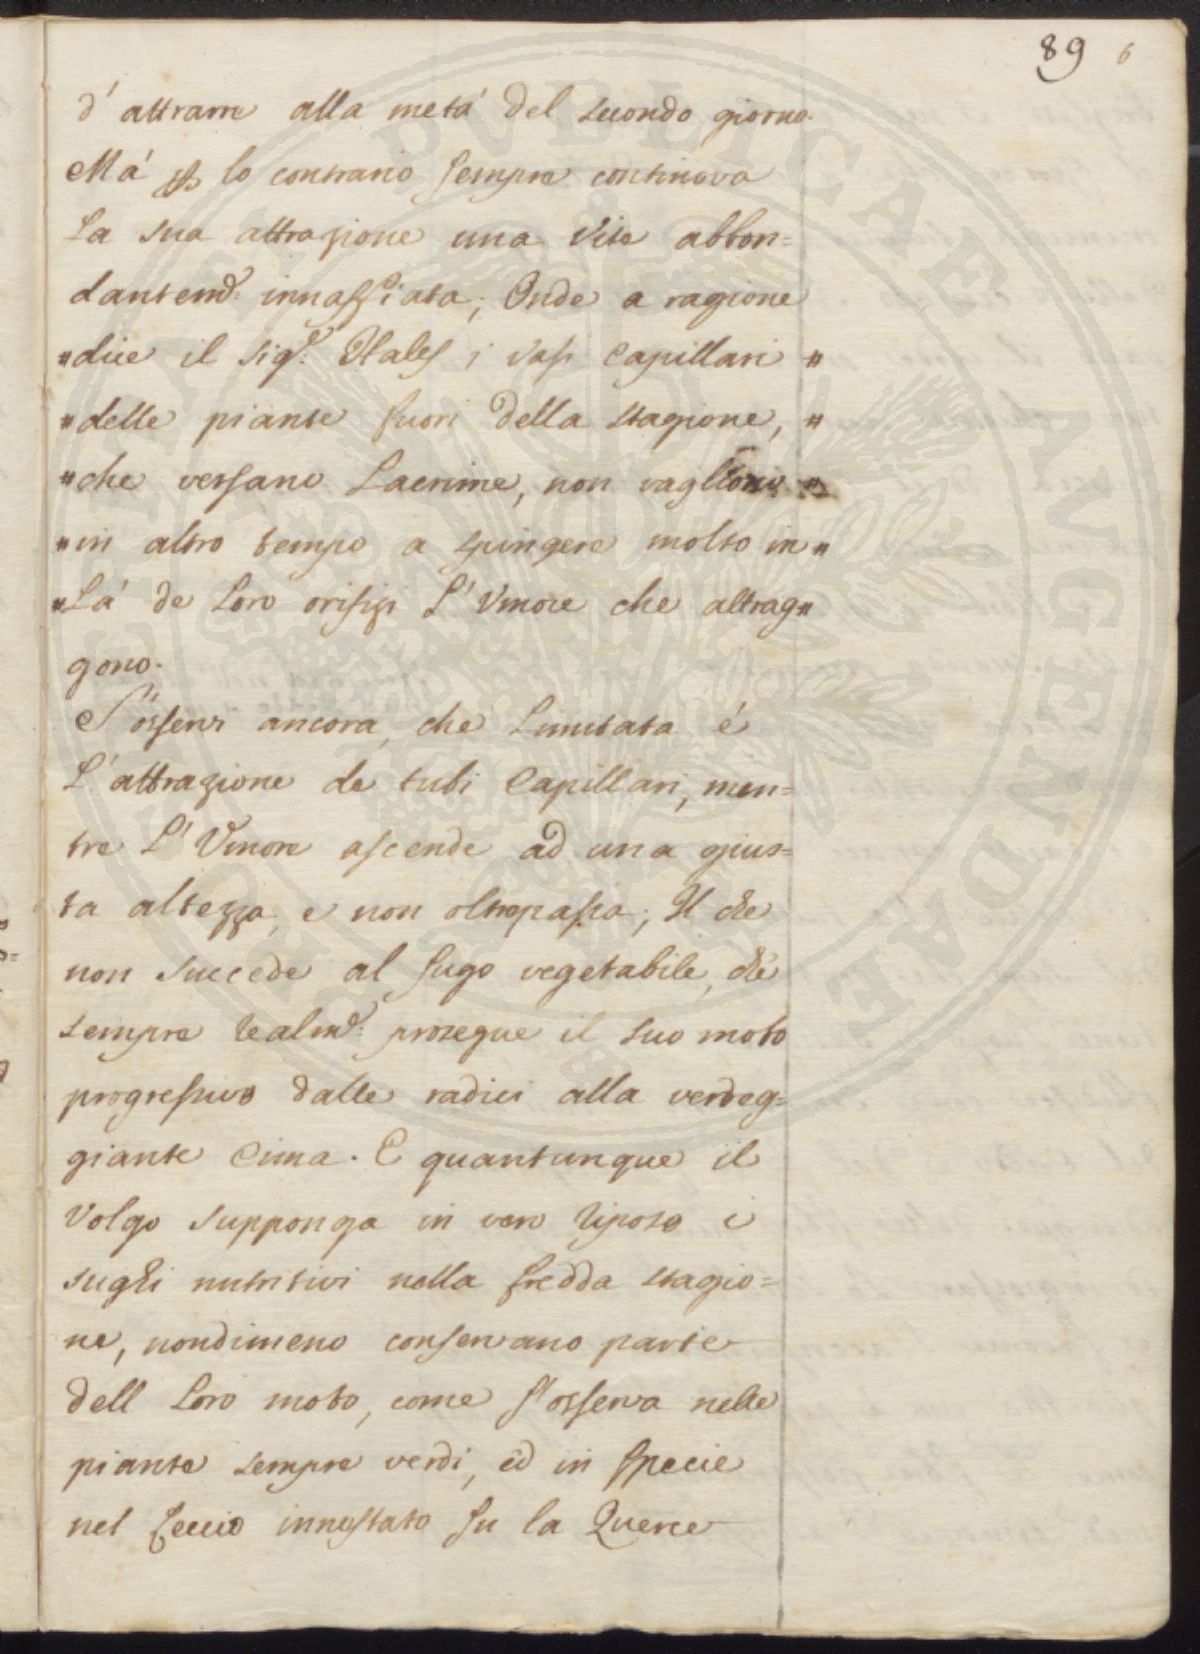 89 6
d'attrarre alla metá del secondo giorno.
Má ꝑ lo contrario sempre continova
La sua attrazione una Vite abbon=
dantemᵉ: innaffiata; Onde a ragione
"dice il Sigʳ: Hales i vasi Capillari "
"delle piante fuori della stagione, "
"che versano Lacrime, non vagliono "
"in altro tempo a spingere molto in "
"Lá de Loro orifizi L'Umore che attrag "
gono.
S'osservi ancora, che Limitata é
L'attrazione de tubi Capillari, men=
tre L'Umore ascende ad una gius=
ta altezza, e non oltrepassa; Il che
non succede al sugo vegetabile, ché
sempre realmᵉ: prosegue il suo moto
progressivo dalle radici alla verdeg=
giante Cima. E quantunque il
Volgo supponga in vero riposo i
sughi nutritivi nella fredda stagio=
ne, nondimeno conservano parte
dell Loro moto, come s'osserva nelle
piante sempre verdi, ed in specie
nel Leccio innestato su la Querce
PVBLICAE AVGENDAE